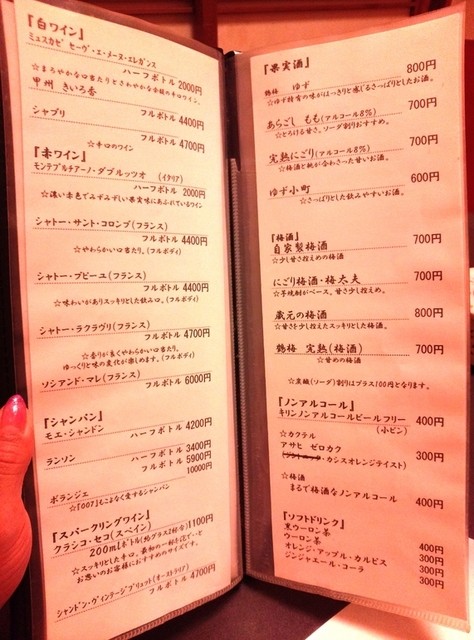 『白ワイン』
ミュスカデ セーヴ・エ・メーヌ・エレガンス
ハーフボトル 2000円
☆まろやかな口当たりとさわやかな余韻の辛口ワイン。
甲州 きいろ香
フルボトル 4400円
シャブリ
フルボトル 4700円
☆辛口のワイン
『赤ワイン』
モンテプルチアーノ・ダブルッツオ (イタリア)
ハーフボトル 2000円
☆濃い赤色でみずみずしい果実味にあふれているワイン
シャトー・サント・コロンブ(フランス)
フルボトル 4400円
☆やわらかい口当たり。(フルボディ)
シャトー・プピーユ(フランス)
フルボトル 4400円
☆味わいがありスッキリとした飲み口。(フルボディ)
シャトー・ラクラヴリ(フランス)
フルボトル 4700円
☆香りが良くやわらかい口当たり。
ゆっくりと味の変化が楽しめます。(フルボディ)
ソシアンド・マレ(フランス)
フルボトル 6000円
『シャンパン』
モエ・シャンドン
ハーフボトル 4200円
ランソン
ハーフボトル 3400円
フルボトル 5900円
10000円
ボランジェ
☆『007』もこよなく愛するシャンパン
『スパークリングワイン』
クラシコ・セコ(スペイン) 1100円
200mlボトル(約グラス2杯分)
☆スッキリとした辛口。最初の一杯を泡で…と
お思いのお客様におすすめのサイズです。
シャンドン・ヴィンテージブリュット(オーストラリア)
フルボトル 4700円
『果実酒』
鶴梅 ゆず 800円
☆ゆず特有の味がよっきりと感じるさっぱりとしたお酒。
あらごし もも(アルコール8%) 700円
☆とろける甘さ。ソーダ割りおすすめ。
完熟にごり(アルコール8%) 700円
☆梅酒と桃が合わさった甘いお酒。
ゆず小町 600円
☆さっぱりとした飲みやすいお酒。
『梅酒』
自家製梅酒 700円
☆少し甘さ控えめの梅酒
にごり梅酒・梅太夫 700円
☆芋焼酎がベース。甘さ少し控えめ。
蔵元の梅酒 800円
☆甘さを少し控えたスッキリとした梅酒。
鶴梅 完熟(梅酒) 700円
☆甘めの梅酒
☆炭酸(ソーダ)割りはプラス100円となります。
『ノンアルコール』
キリンノンアルコールビールフリー 400円
(小ビン)
☆カクテル
アサヒ ゼロカク 300円
カシスオレンジテイスト)
☆梅酒
まるで梅酒なノンアルコール
400円
『ソフトドリンク』
黒ウーロン茶 400円
ウーロン茶 300円
オレンジ・アップル・カルピス 300円
ジンジャエール・コーラ 300円